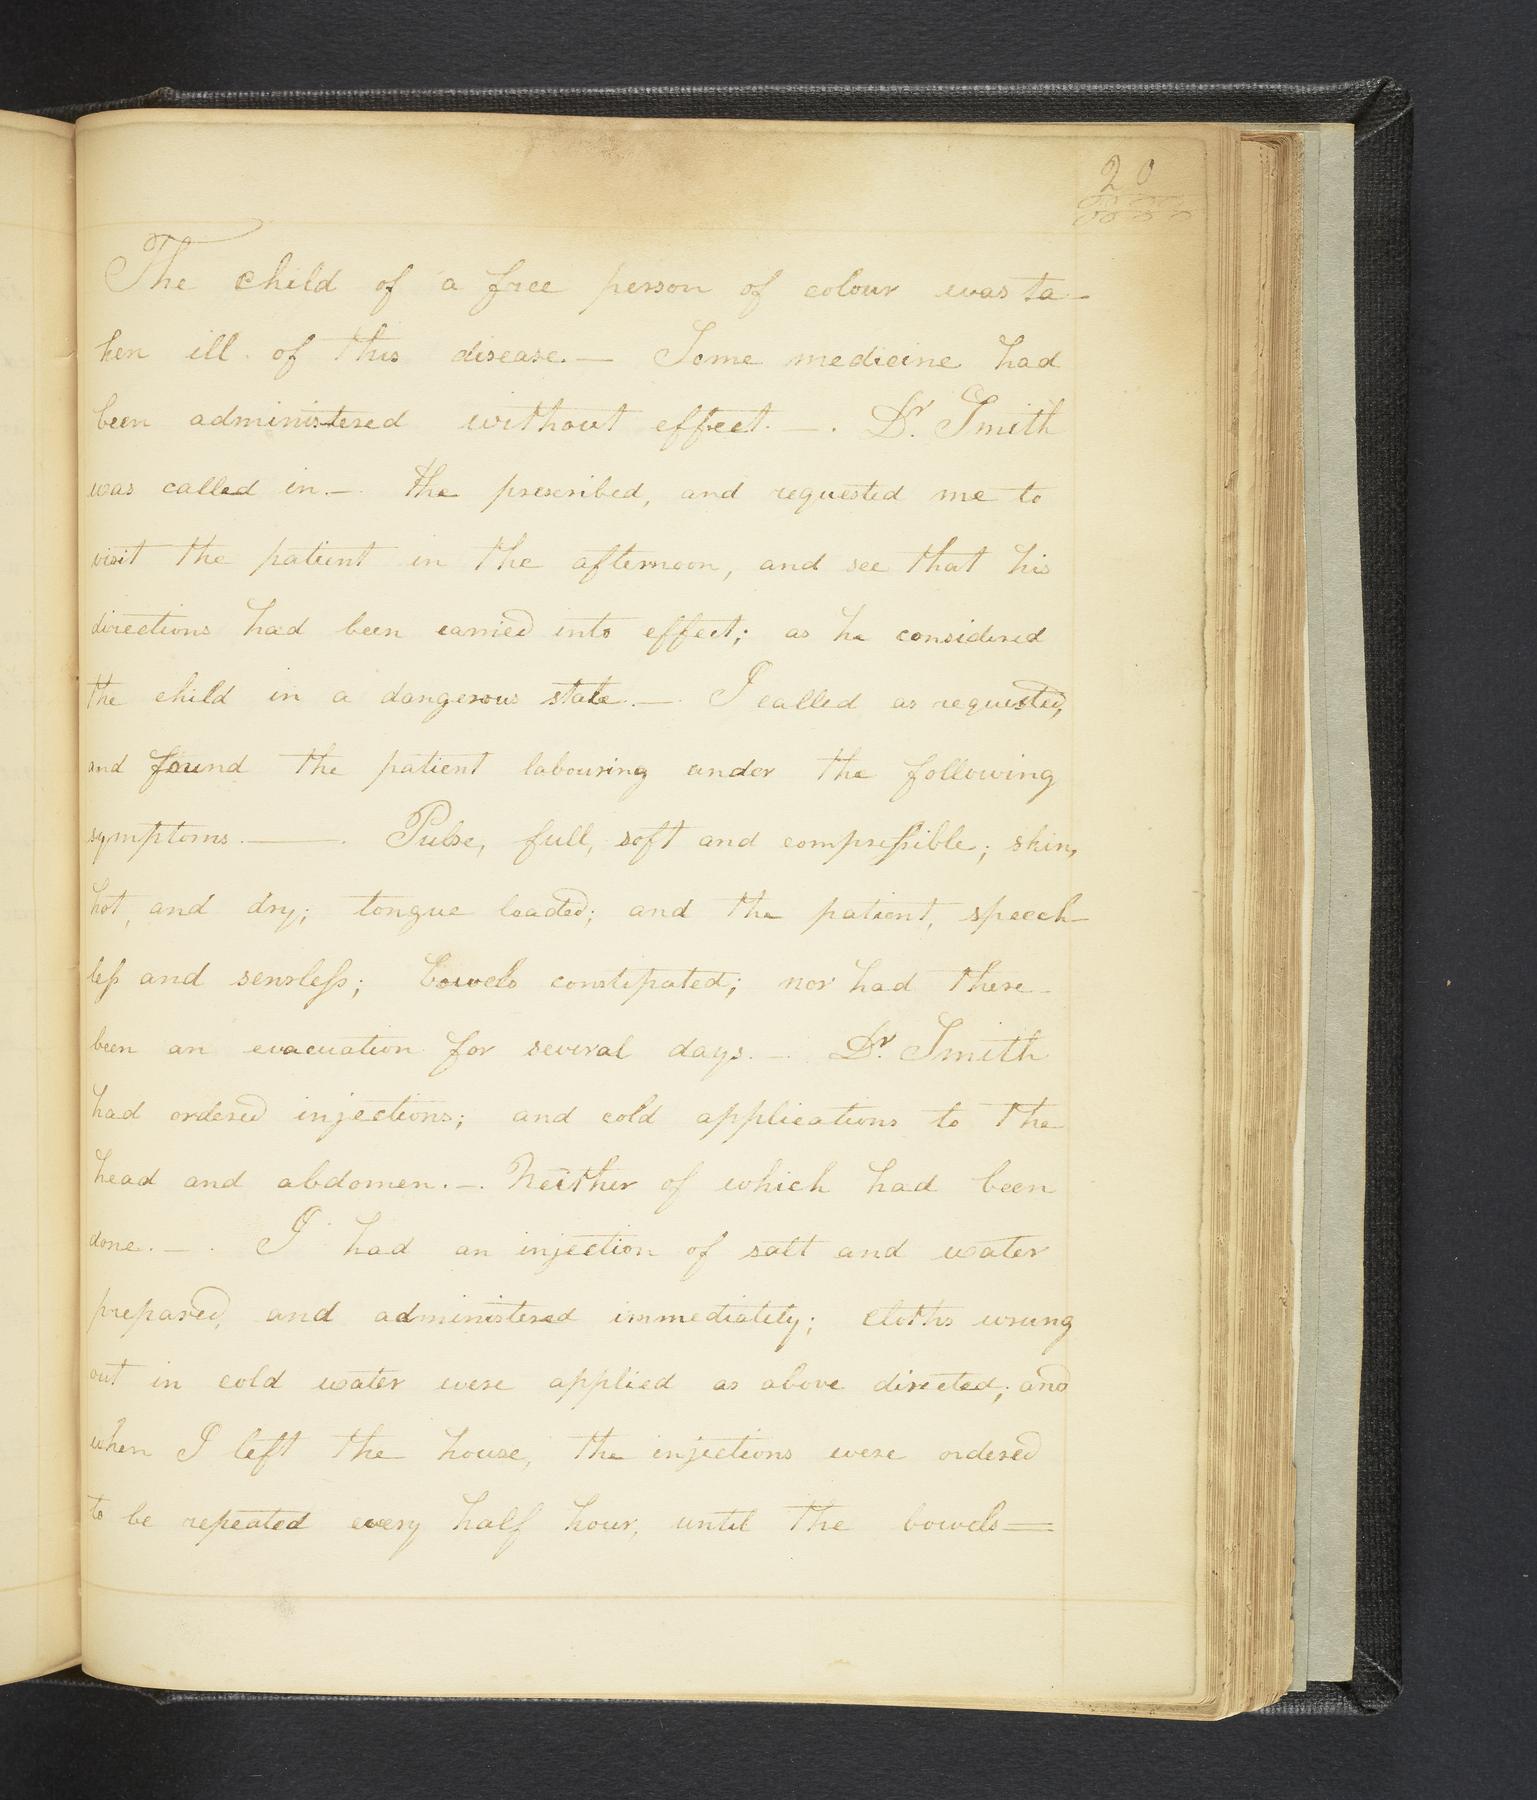 20
The child of a free person of colour was ta-
ken ill. of this disease.— Some medicine had
been administered without effect. —. Dr. Smith
was called in.—. the prescribed, and requested me to
visit the patient in the afternoon, and see that his
directions had been carried into effect; as he considered
the child in a dangerous state.—. I called as requested,
and found the patient labouring under the following
symptoms.——. Pulse, full, soft and compressible; skin,
hot, and dry; tongue loaded; and the patient, speech-
less and sensless; bowels constipated; nor had there
been an evacuation for several days.—. Dr. Smith
had ordered injections; and cold applications to the
head and abdomen.—. Neither of which had been
done.—. I had an injection of salt and water
prepared, and administered immediately; cloths wrung
out in cold water were applied as above directed; and
when I left the house, the injections were ordered
to be repeated every half hour, until the bowels=